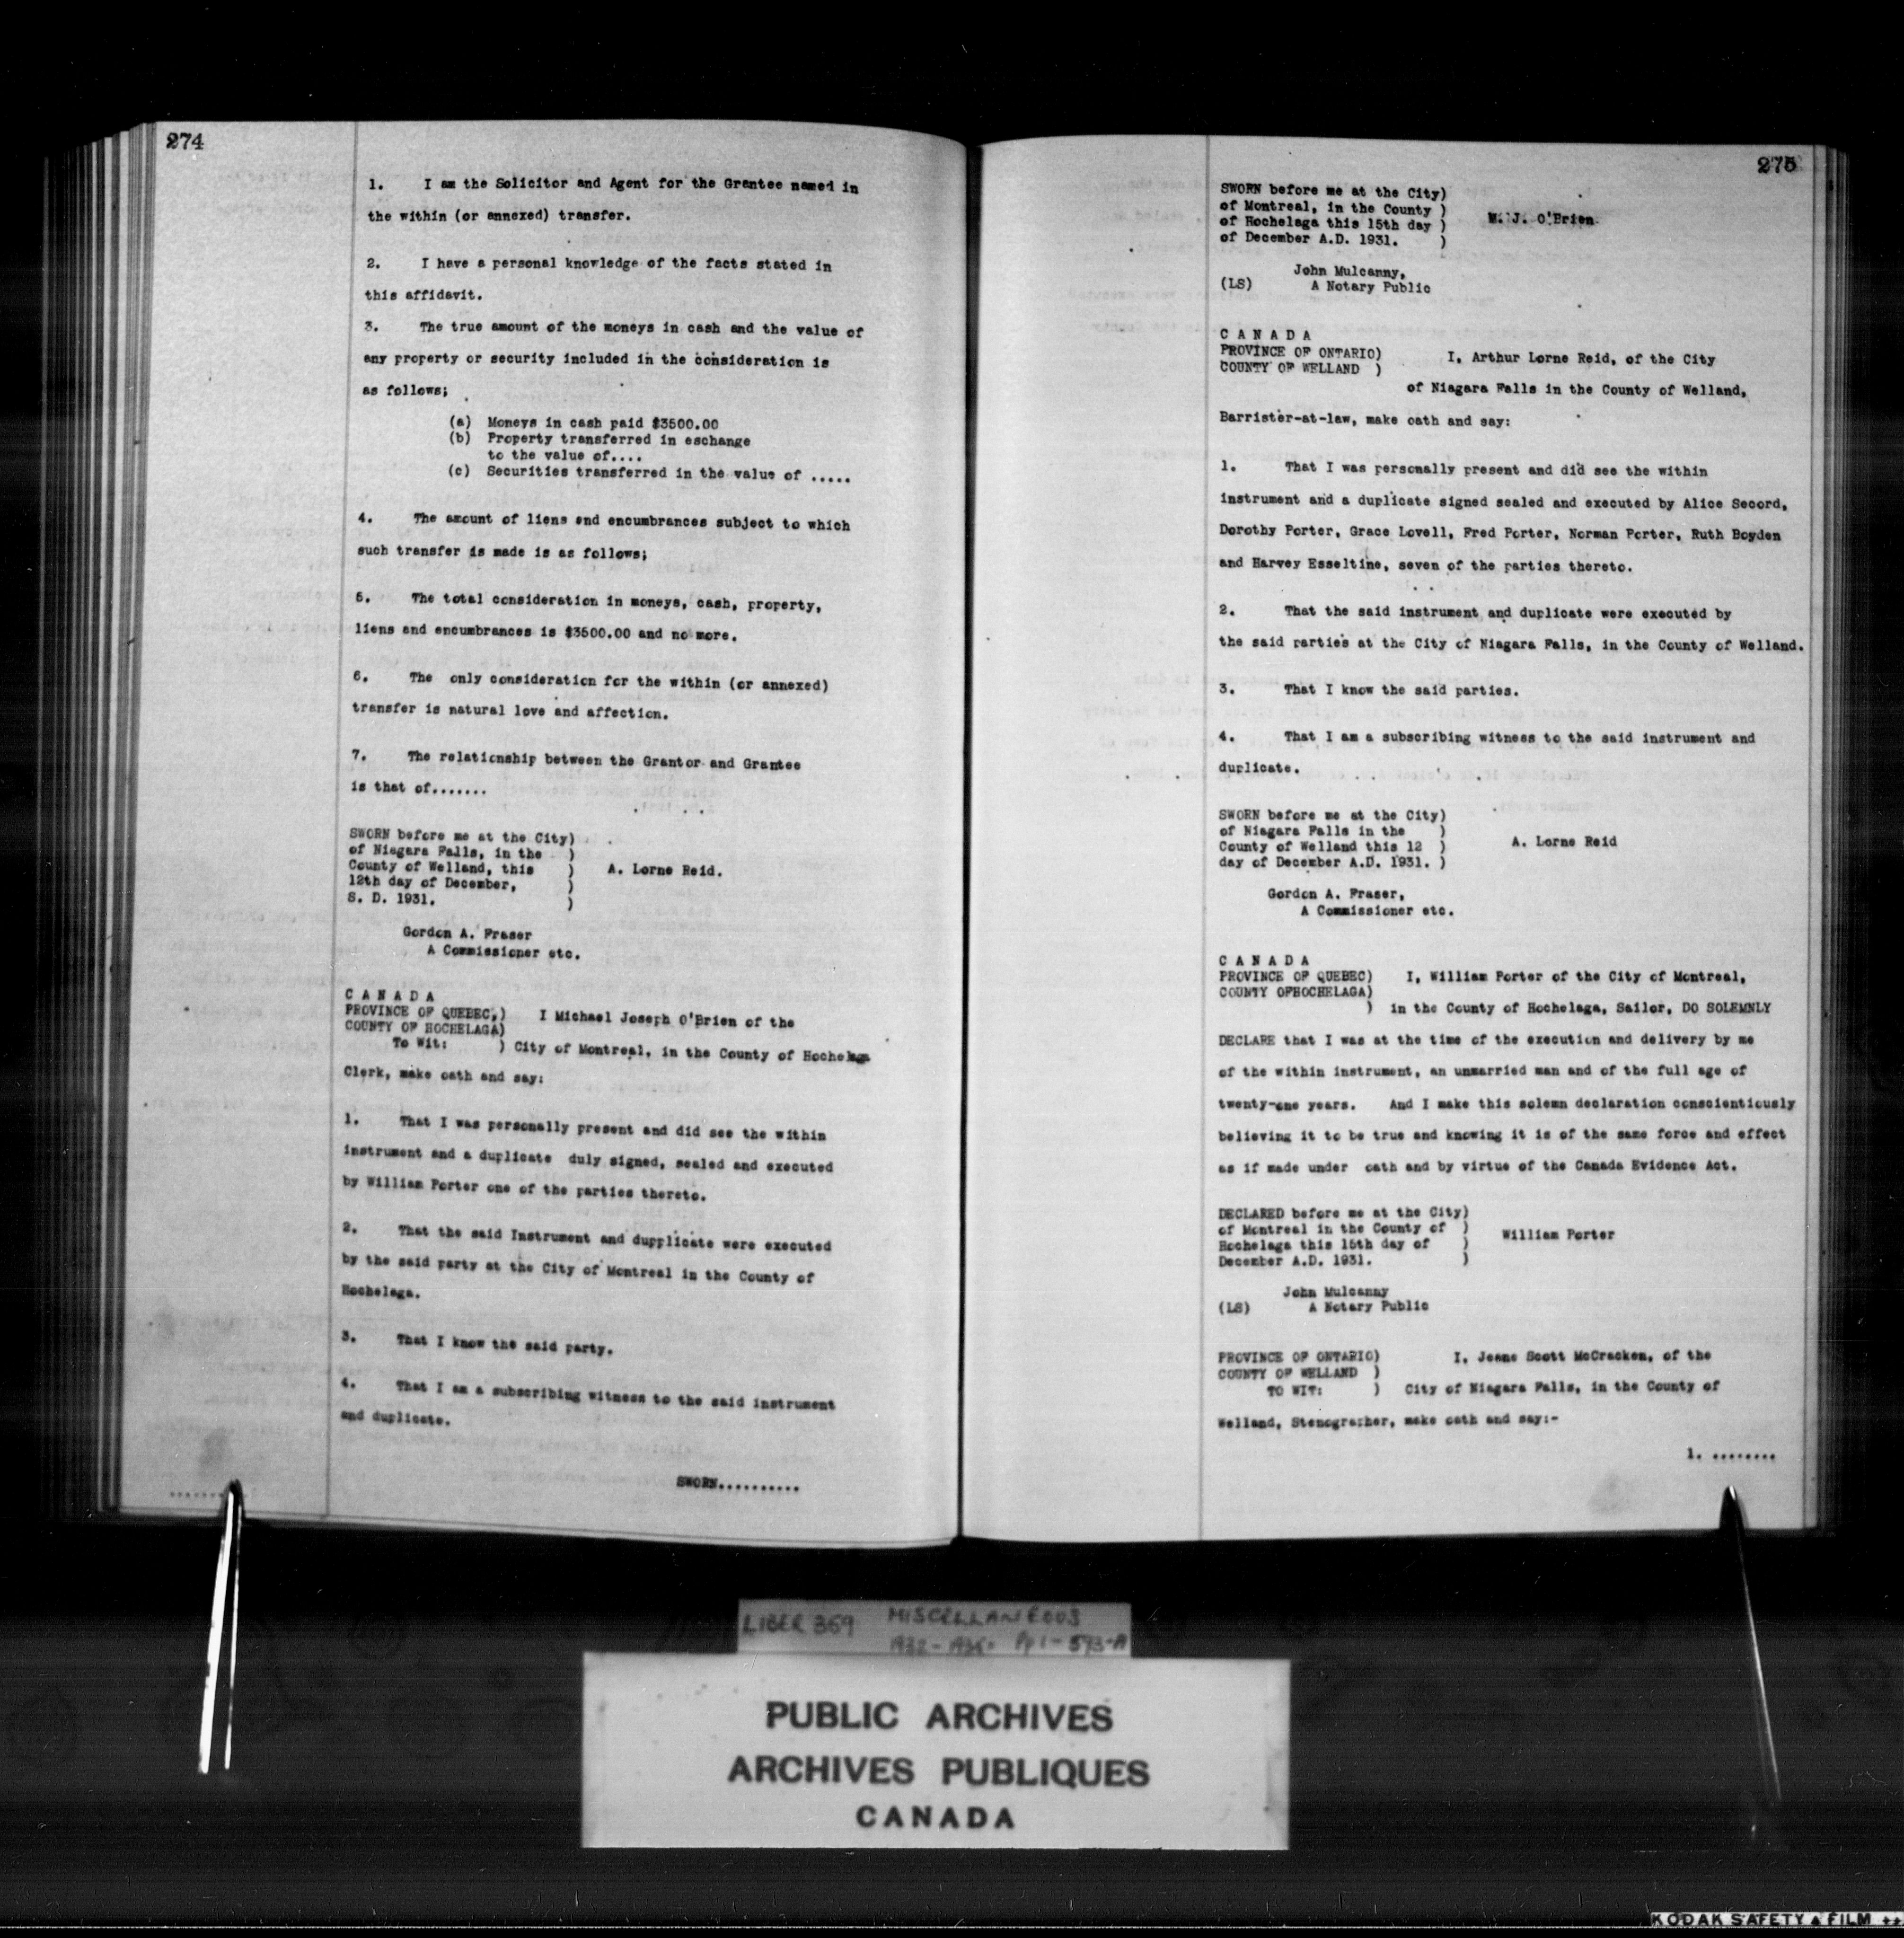 274
1. I am the Solicitor and Agent for the Grantee named in
the within (or annexed) transfer.
2. I have a personal knowledge of the facts stated in
this affidavit.
3. The true amount of the moneys in cash and the value of
any property or security included in the consideration is
as follows;
(a) Moneys in cash paid $3500.00
(b) Property transferred in eschange
to the value of....
(c) Securities transferred in the value of .....
4. The amount of liens and encumbrances subject to which
such transfer is made is as follows;
5. The total consideration in moneys, cash, property,
liens and encumbrances is $3500.00 and no more.
6. The only consideration for the within (or annexed)
transfer is natural love and affection.
7. The relationship between the Grantor and Grantee
is that of.......
SWORN before me at the City)
of Niagara Falls, in the )
County of Welland, this ) A. Lorne Reid.
12th day of December, )
S. D. 1931. )
Gordon A. Fraser
A Commissioner etc.
C A N A D A
PROVINCE OF QUEBEC,) I Michael Joseph O'Brien of the
COUNTY OF HOCHELAGA)
To Wit: ) City of Montreal, in the County of Hochelaga
Clerk, make oath and say:
1. That I was personally present and did see the within
instrument and a duplicate duly signed, sealed and executed
by William Porter one of the parties thereto.
2. That the said Instrument and dupplicate were executed
by the said party at the City of Montreal in the County of
Hochelaga.
3. That I know the said party.
4. That I am a subscribing witness to the said instrument
and duplicate.
SWORN..........
275
SWORN before me at the City)
of Montreal, in the County )
of Hochelaga this 15th day ) M. J. O'Brien
of December A.D. 1931. )
John Mulcanny,
(LS) A Notary Public
C A N A D A
PROVINCE OF ONTARIO) I, Arthur Lorne Reid, of the City
COUNTY OF WELLAND )
of Niagara Falls in the County of Welland,
Barrister-at-law, make oath and say:
1. That I was personally present and did see the within
instrument and a duplicate signed sealed and executed by Alice Secord,
Dorothy Porter, Grace Lovell, Fred Porter, Norman Porter, Ruth Boyden
and Harvey Esseltine, seven of the parties thereto.
2. That the said instrument and duplicate were executed by
the said parties at the City of Niagara Falls, in the County of Welland.
3. That I know the said parties.
4. That I am a subscribing witness to the said instrument and
duplicate.
SWORN before me at the City)
of Niagara Falls in the )
County of Welland this 12 ) A. Lorne Reid
day of December A.D. 1931. )
Gordon A. Fraser,
A Commissioner etc.
C A N A D A
PROVINCE OF QUEBEC) I, William Porter of the City of Montreal,
COUNTY OFHOCHELAGA)
) in the County of Hochelaga, Sailor, DO SOLEMNLY
DECLARE that I was at the time of the execution and delivery by me
of the within instrument, an unmarried man and of the full age of
twenty-one years. And I make this solemn declaration conscientiously
believing it to be true and knowing it is of the same force and effect
as if made under oath and by virtue of the Canada Evidence Act.
DECLARED before me at the City)
of Montreal in the County of )
Hochelaga this 15th day of ) William Porter
December A.D. 1931. )
John Mulcanny
(LS) A Notary Public
PROVINCE OF ONTARIO) I, Jeane Scott McCracken, of the
COUNTY OF WELLAND )
TO WIT: ) City of Niagara Falls, in the County of
Welland, Stenographer, make oath and say:-
1. ........
LIBER 369 MISCELLANEOUS
1932- Pp 1-593-A
PUBLIC ARCHIVES
ARCHIVES PUBLIQUES
CANADA
KODAK SAFETY FILM